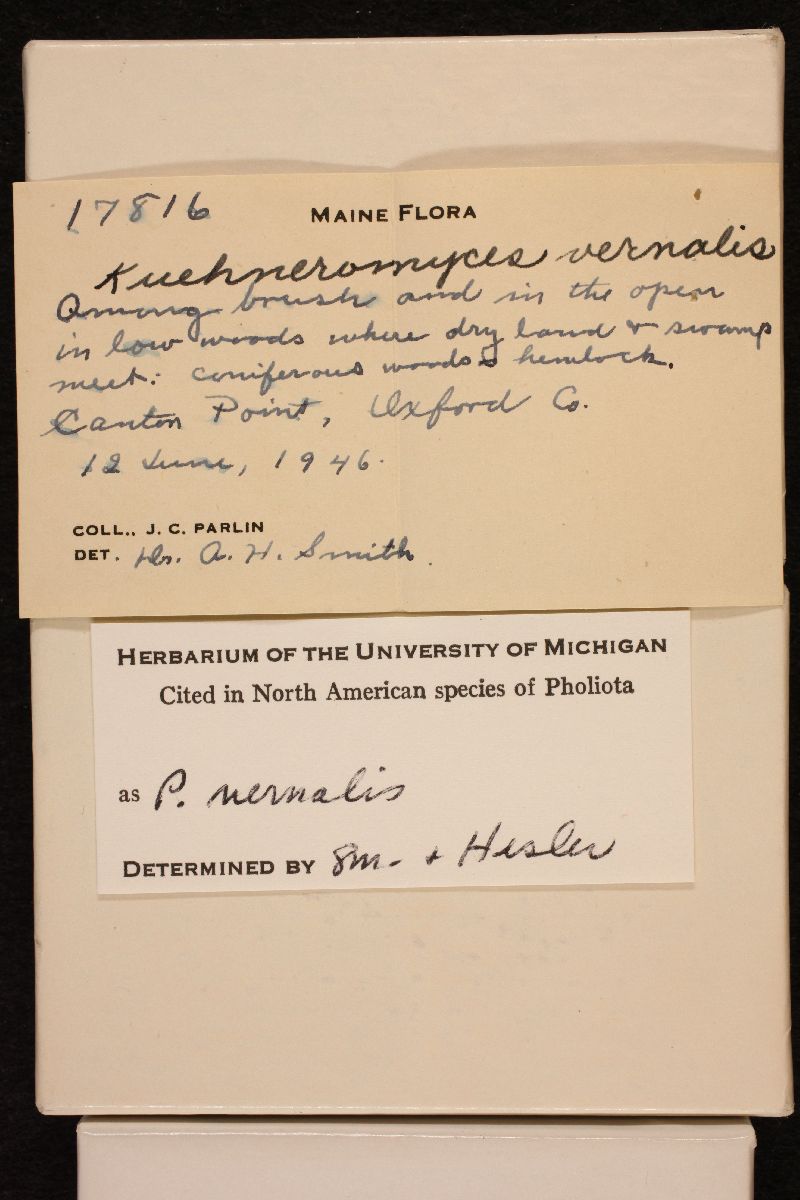 17816
MAINE FLORA
Kuehneromyces vernalis
Among brush and in the open
in low woods where dry land & swamp
meet: coniferous woods & hemlock.
Canton Point, Oxford Co.
12 June, 1946.
COLL., J. C. PARLIN
DET. Dr. A. H. Smith.
HERBARIUM OF THE UNIVERSITY OF MICHIGAN
Cited in North American species of Pholiota
as P. vernalis
DETERMINED BY Sm. + Hesler